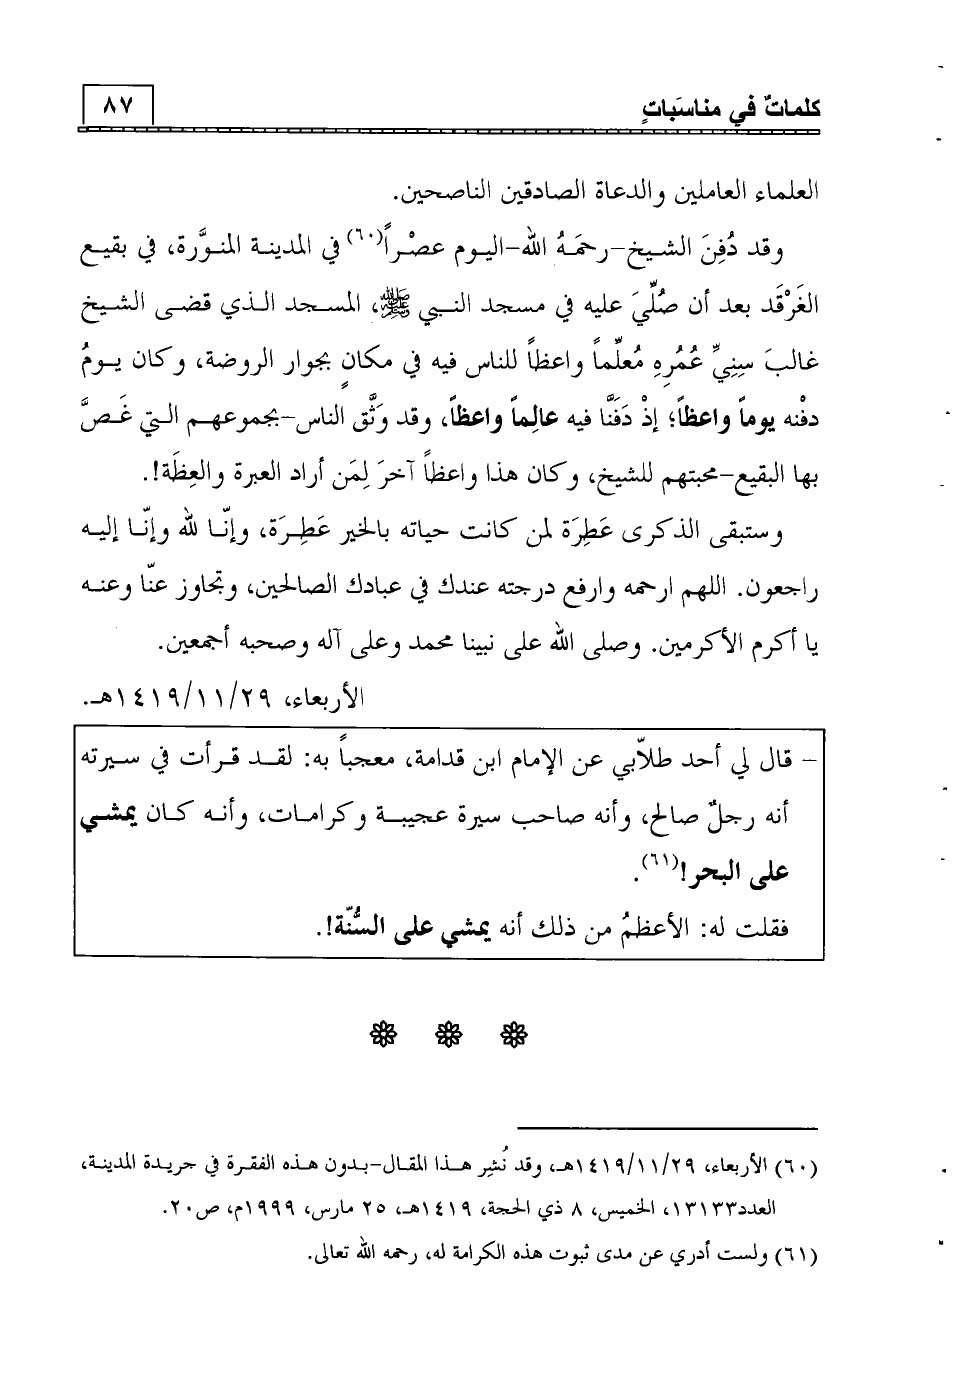 كلماتٌ في مناسَباتٍ
٨٧
العلماء العاملين والدعاة الصادقين الناصحين.
وقد دُفِنَ الشيخ-رحمَهُ الله-اليوم عصْراً(٦٠) في المدينة المنوَّرة، في بقيع
الغَرْقَد بعد أن صُلِّيَ عليه في مسجد النبي ﷺ، المسجد الذي قضى الشيخ
غالبَ سِنِيِّ عُمُرِهِ مُعلِّماً واعظاً للناس فيه في مكانٍ بجوار الروضة، وكان يومُ
دفْنه يوماً واعظاً؛ إذْ دَفَنَّا فيه عالِماً واعظاً، وقد وَثَّق الناس-بجموعهم التي غَصَّ
بها البقيع-محبتهم للشيخ، وكان هذا واعظاً آخرَ لِمَن أراد العبرة والعِظَة!.
وستبقى الذكرى عَطِرَة لمن كانت حياته بالخير عَطِرَة، وإنّا لله وإنّا إليه
راجعون. اللهم ارحمه وارفع درجته عندك في عبادك الصالحين، وتجاوز عنّا وعنه
يا أكرم الأكرمين. وصلى الله على نبينا محمد وعلى آله وصحبه أجمعين.
الأربعاء، ١٤١٩/١١/٢٩هـ.
- قال لي أحد طلاّبي عن الإمام ابن قدامة، معجباً به: لقد قرأت في سيرته
أنه رجلٌ صالح، وأنه صاحب سيرة عجيبة وكرامات، وأنه كان يمشي
على البحر!(٦١).
فقلت له: الأعظمُ من ذلك أنه يمشي على السُّنَّة!.
(٦٠) الأربعاء، ١٤١٩/١١/٢٩هـ، وقد نُشِر هذا المقال-بدون هذه الفقرة في جريدة المدينة،
العدد١٣١٣٣، الخميس، ٨ ذي الحجة، ١٤١٩هـ، ٢٥ مارس، ١٩٩٩م، ص٢٠.
(٦١) ولست أدري عن مدى ثبوت هذه الكرامة له، رحمه الله تعالى.